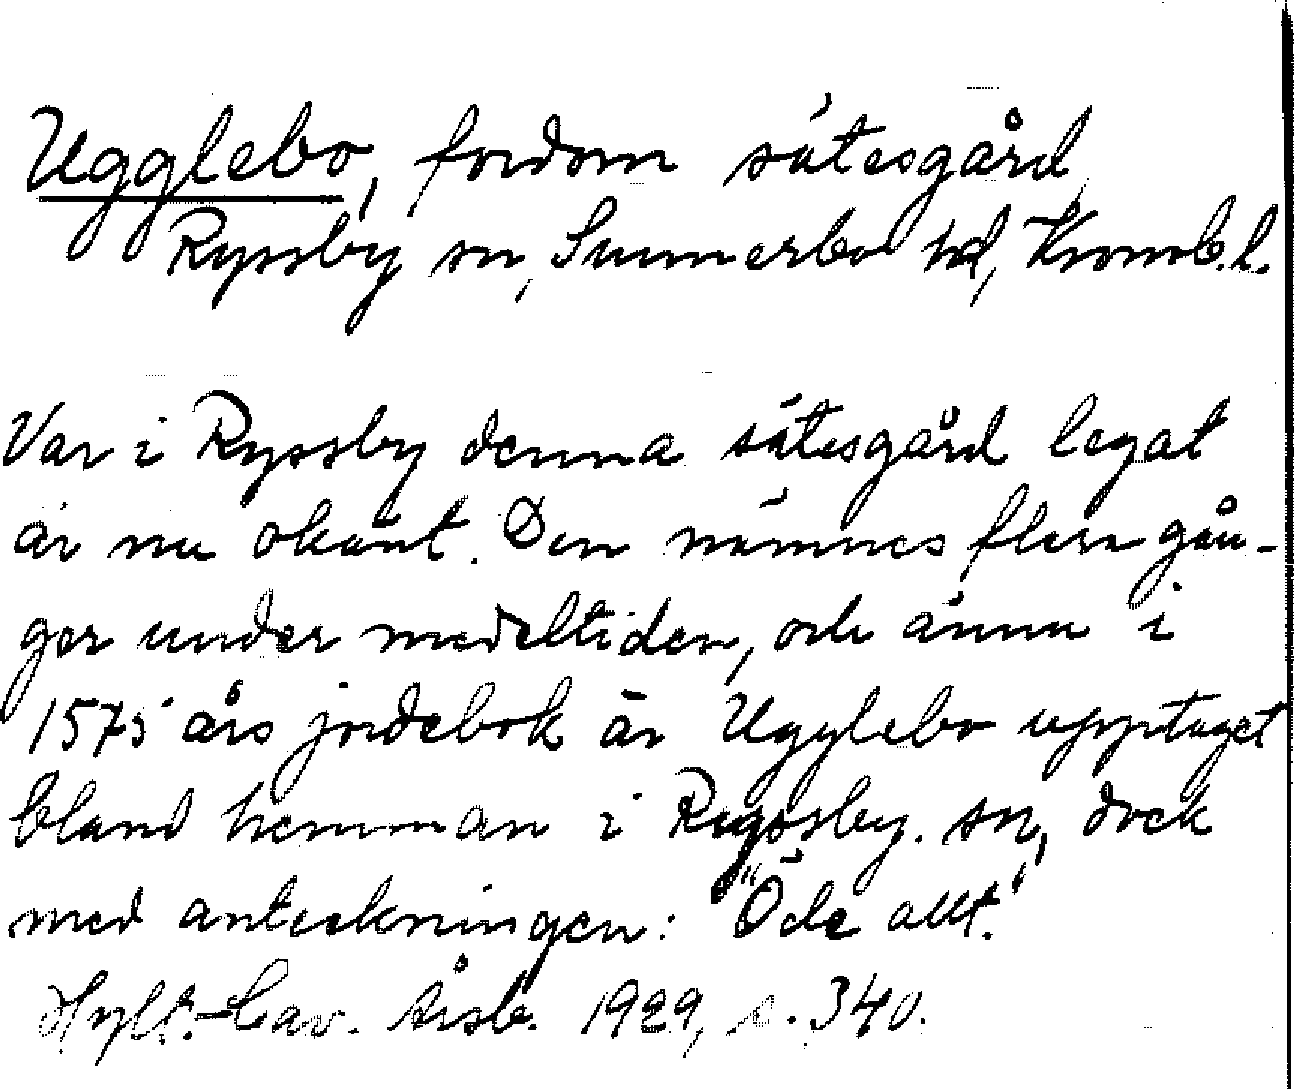 Ugglebo, fordom sätesgård
Ryssby sn, Sunnerbo hd, Kronob.l.
Var i Ryssby denna sätesgård legat
är nu okänt. Den nämnes flera gån-
ger under medeltiden, och ännu i
1575 års jordebok är Ugglebo upptaget
bland hemman i Ryssby. sn, dock
med anteckningen: "Öde allt."
Hylt.-Cav. Årsb. 1929, s. 340.